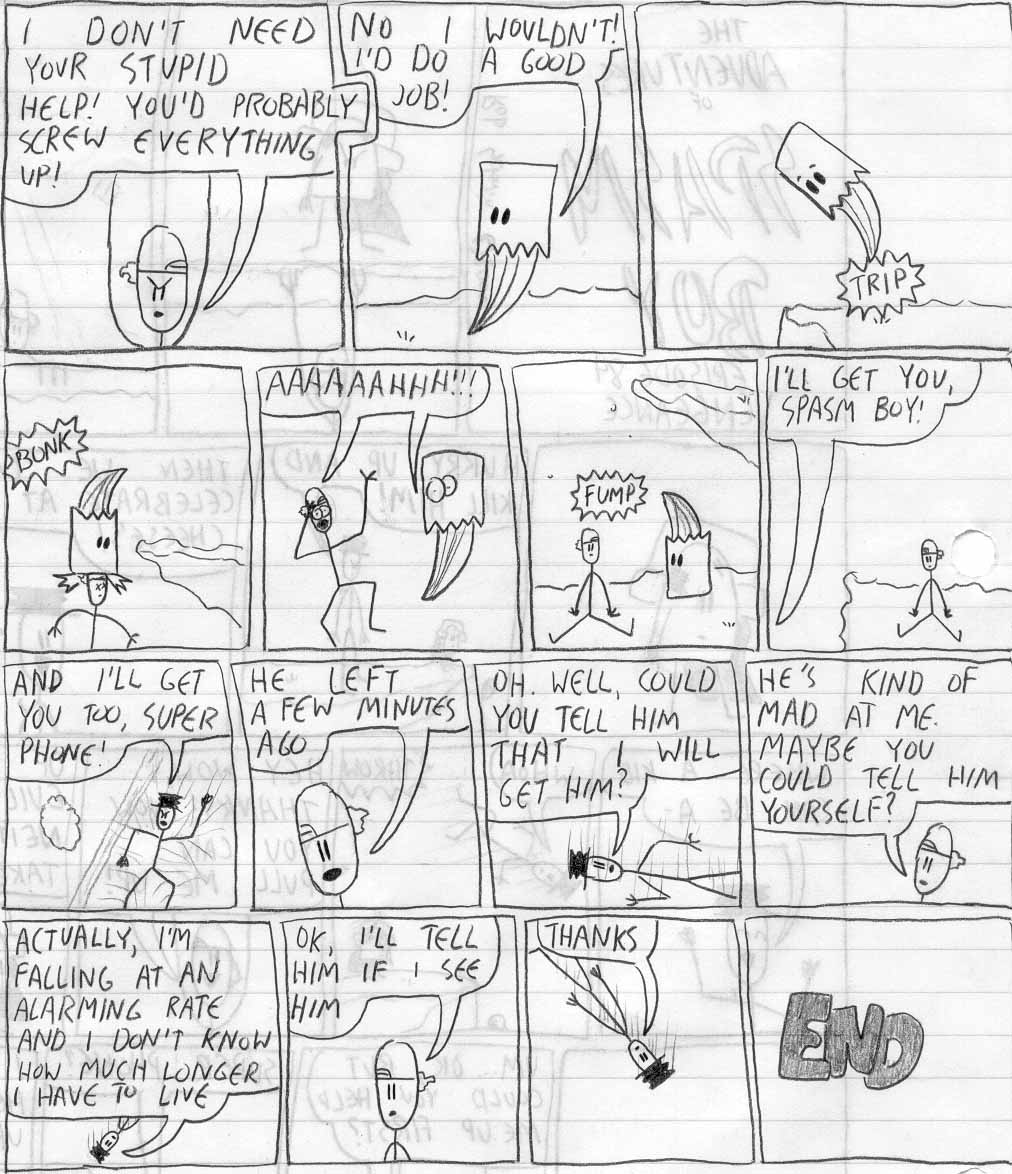 I DON'T NEED
YOUR STUPID
HELP! YOU'D PROBABLY
SCREW EVERYTHING
UP!
NO I WOULDN'T!
I'D DO A GOOD
JOB!
TRIP
BONK
AAAAAAHHH!!!
FUMP
I'LL GET YOU,
SPASM BOY!
AND I'LL GET
YOU TOO, SUPER
PHONE!
HE LEFT
A FEW MINUTES
AGO
OH. WELL, COULD
YOU TELL HIM
THAT I WILL
GET HIM?
HE'S KIND OF
MAD AT ME.
MAYBE YOU
COULD TELL HIM
YOURSELF?
ACTUALLY, I'M
FALLING AT AN
ALARMING RATE
AND I DON'T KNOW
HOW MUCH LONGER
I HAVE TO LIVE
OK, I'LL TELL
HIM IF I SEE
HIM
THANKS
END